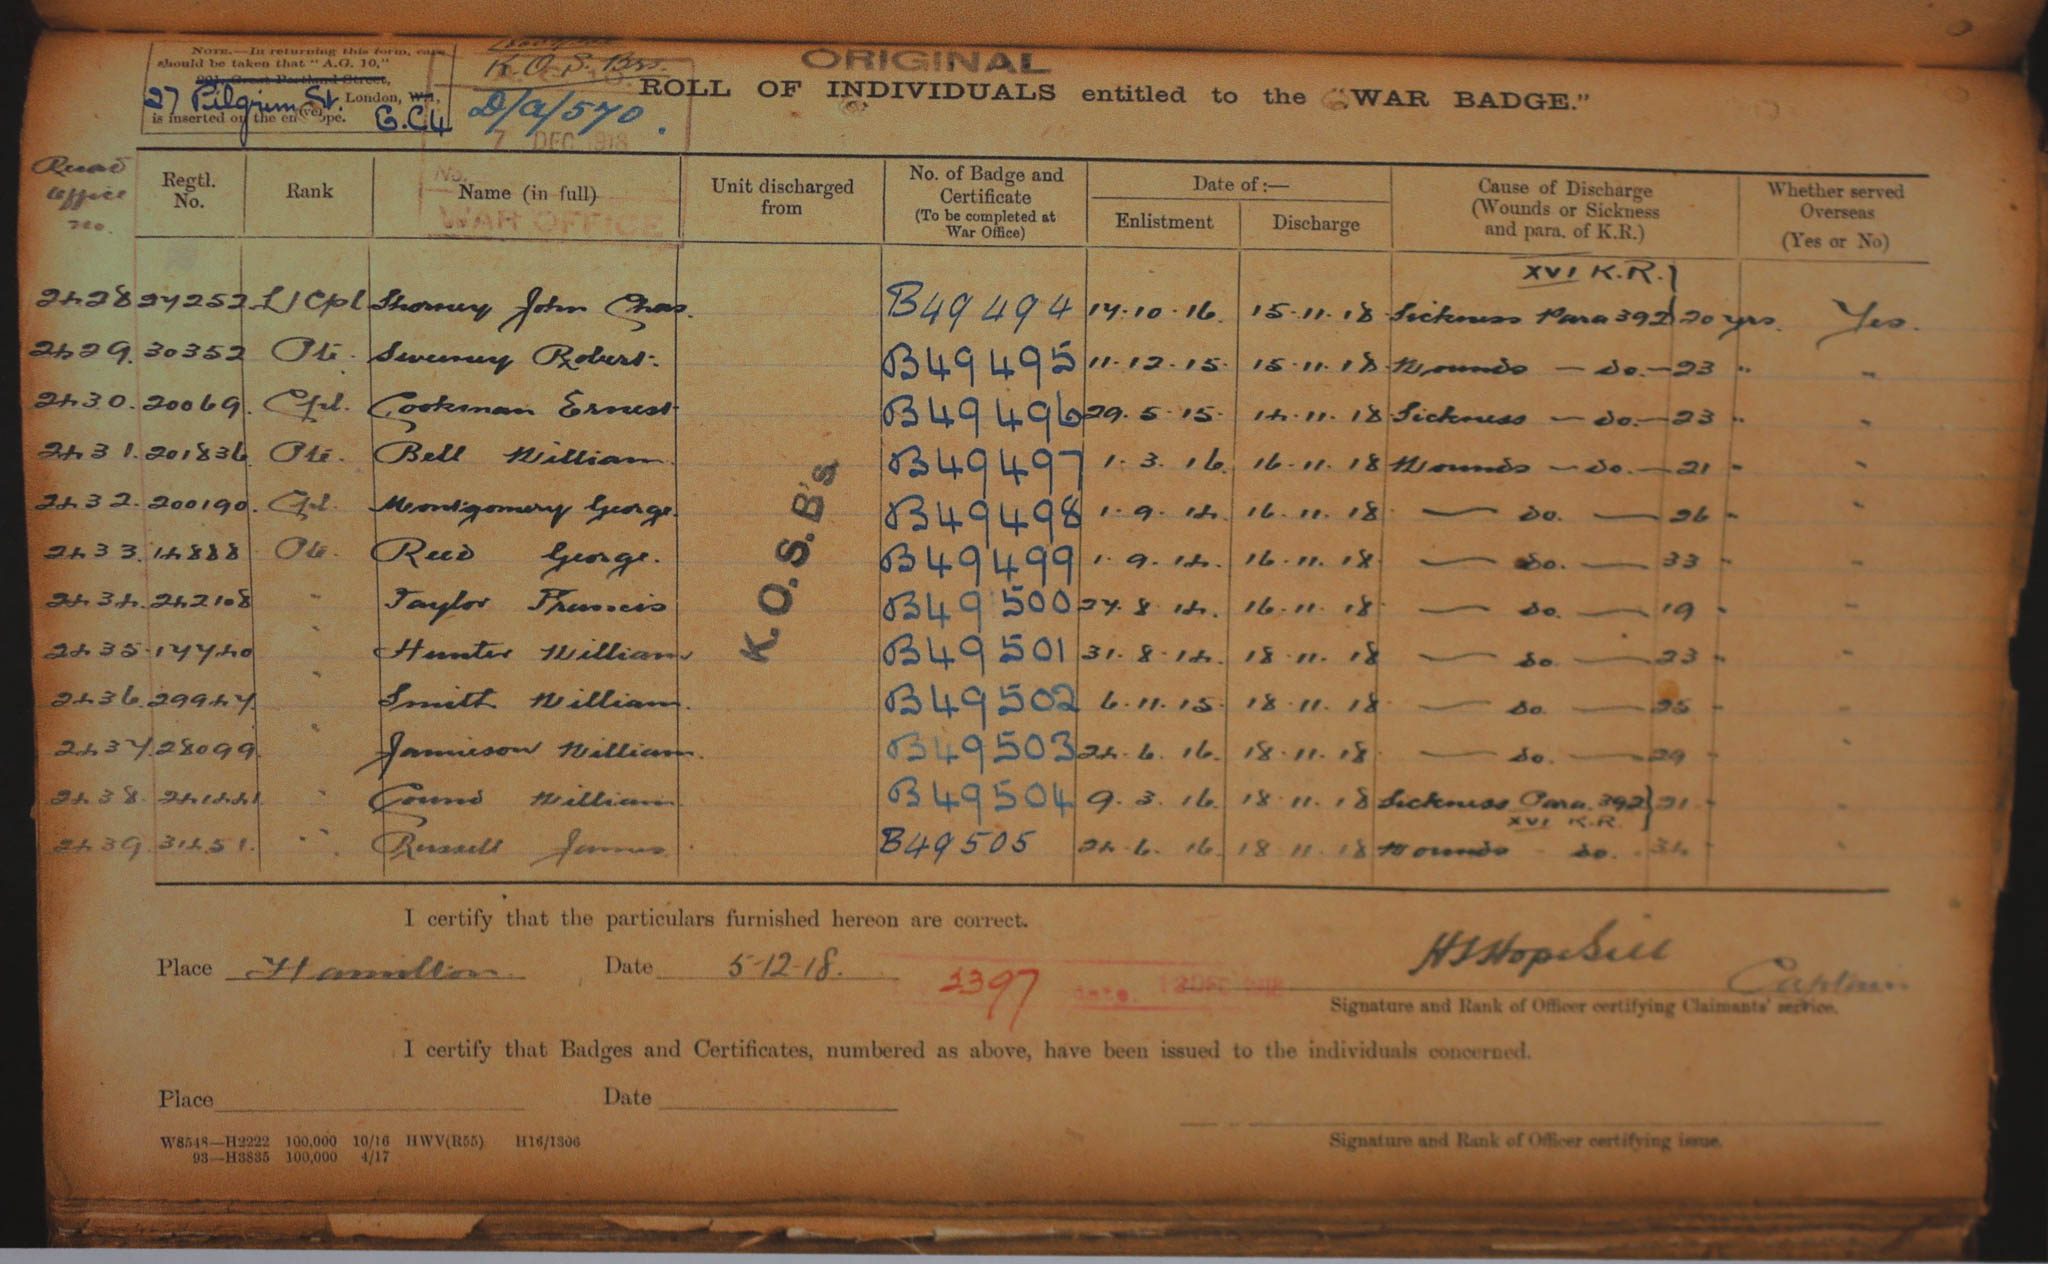 NOTE.—In returning this form, care
should be taken that "A.G. 10,"
London,
27 Pilgrim St.
is inserted on the envelope. E.C.4
K.O.S. Brs.
D/a/570.
7 DEC 1918
No.
WAR OFFICE
ORIGINAL
ROLL OF INDIVIDUALS entitled to the "WAR BADGE."
Record Office no.
Regtl. No.
Rank
Name (in full)
Unit discharged from
No. of Badge and Certificate (To be completed at War Office)
Date of:—
Enlistment
Discharge
Cause of Discharge (Wounds or Sickness and para. of K.R.)
Whether served Overseas (Yes or No)
XVI K.R.}
2428 27252 L/Cpl Thorney John Chas. B49494 17.10.16. 15.11.18 Sickness Para 392} 20 yrs. Yes.
2429. 30352 Pte. Sweeney Robert. B49495 11.12.15. 15.11.18 Wounds — do. — 23 " "
2430. 20069. Cpl. Cookman Ernest B49496 29.5.15. 14.11.18 Sickness — do. — 23 " "
2431. 201836. Pte. Bell William. B49497 1.3.16. 16.11.18 Wounds — do. — 21 " "
2432. 200190. Cpl. Montgomery George. B49498 1.9.14. 16.11.18 — do. — 26 " "
2433. 14888 Pte. Reid George. B49499 1.9.14. 16.11.18 — do. — 33 " "
2434. 242108 " Taylor Francis B49500 27.8.14. 16.11.18 — do. — 19 " "
2435. 17740 " Hunter William B49501 31.8.14. 18.11.18 — do. — 23 " "
2436. 29947 " Smith William. B49502 6.11.15. 18.11.18 — do. — 25 " "
2437. 28099. " Jamieson William. B49503 24.6.16. 18.11.18 — do. — 29 "
2438. 241441 " William. B49504 9.3.16. 18.11.18 Sickness Para. 392} 21 " "
XVI K.R.
2439. 31451. " Russell James. B49505 24.6.16. 18.11.18 Wounds do. 34 " "
K.O.S.B's
I certify that the particulars furnished hereon are correct.
Place Hamilton Date 5-12-18.
2397 date. 12 DEC 1918
H S Hope Gill Captain
Signature and Rank of Officer certifying Claimants' service.
I certify that Badges and Certificates, numbered as above, have been issued to the individuals concerned.
Place Date
Signature and Rank of Officer certifying issue.
W8548—H2222 100,000 10/16 HWV(R55) H16/1306
93—H3835 100,000 4/17